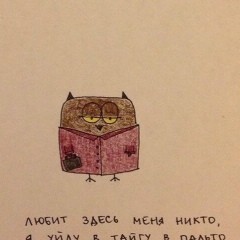 ЛЮБИТ ЗДЕСЬ МЕНЯ НИКТО,
Я УЙДУ В ТАЙГУ В ПАЛЬТО